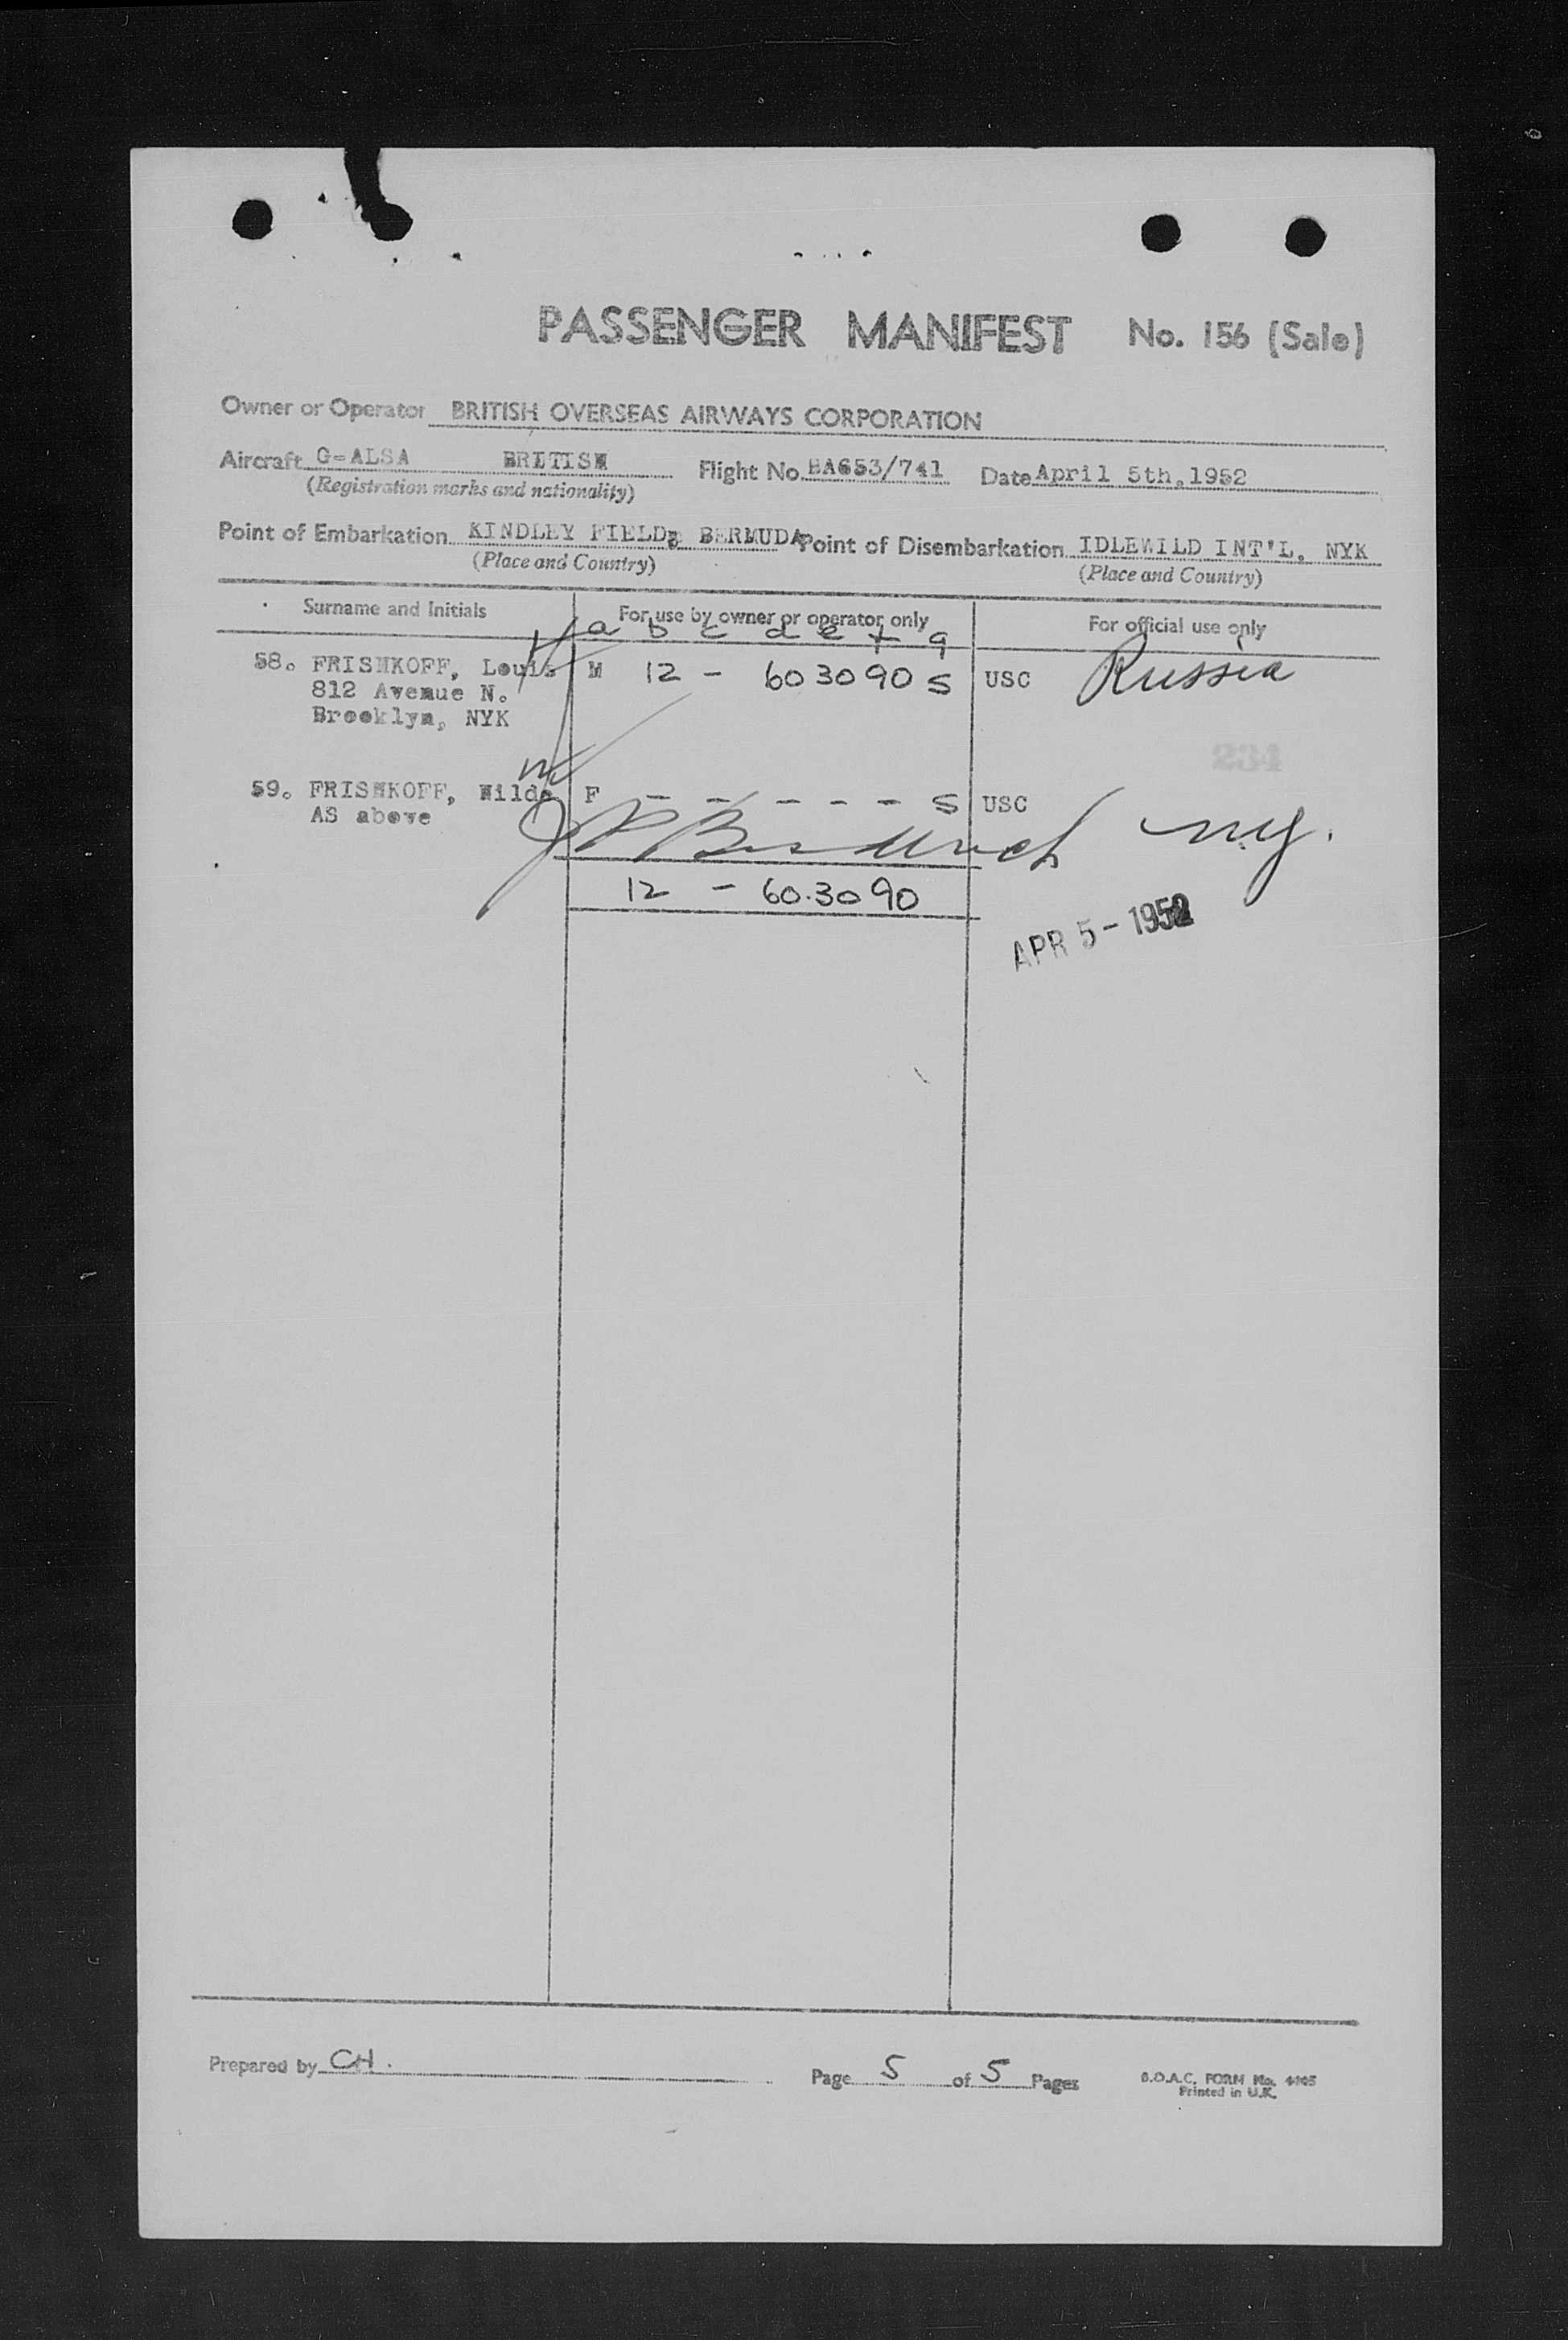 PASSENGER MANIFEST No. 156 (Sale)
Owner or Operator BRITISH OVERSEAS AIRWAYS CORPORATION
Aircraft G-ALSA BRITISH Flight No. BA653/741 Date April 5th,1952
(Registration marks and nationality)
Point of Embarkation KINDLEY FIELD, BERMUDA Point of Disembarkation IDLEWILD INT'L. NYK
(Place and Country) (Place and Country)
Surname and Initials For use by owner or operator only For official use only
a b c d e f g
58. FRISHKOFF, Louis M 12 - 60 30 90 S USC Russia
812 Avenue N.
Brooklyn, NYK
234
59. FRISHKOFF, Hilda F - - - - - S USC
AS above
N.Y.
12 - 60.30 90
APR 5 - 1952
Prepared by CH. Page 5 of 5 Pages B.O.A.C. FORM No.
Printed in U.K.